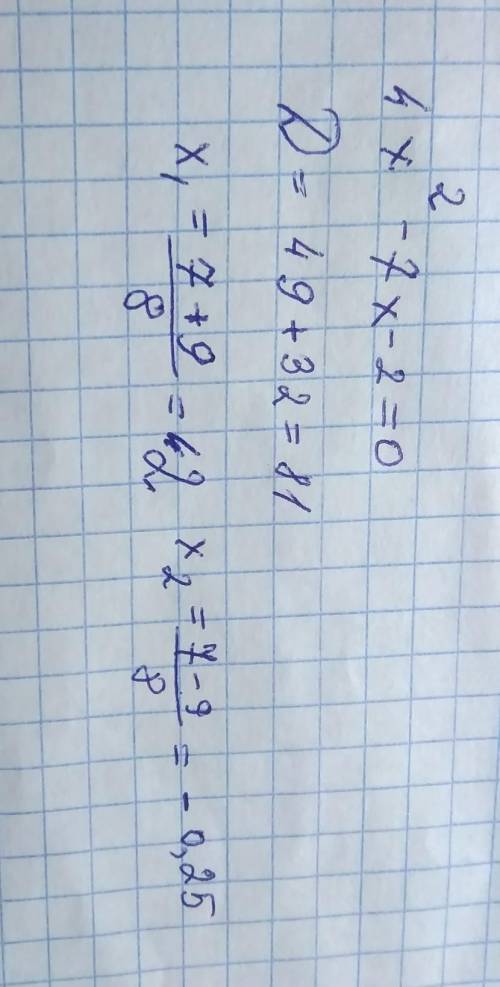 4x² - 7x - 2 = 0
D = 49 + 32 = 81
x₁ = (7 + 9)/8 = 2 x₂ = (7 - 9)/8 = - 0,25